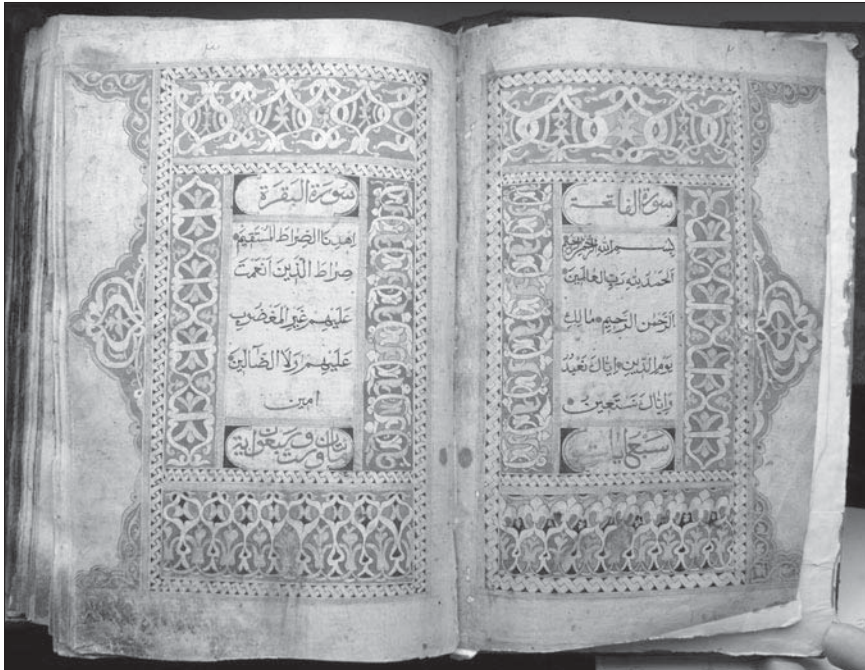 سُورَةُ الفَاتِحَة
بِسْمِ اللهِ الرَّحْمٰنِ الرَّحِيمِ
اَلحَمْدُ لِلّٰهِ رَبِّ العَالَمِينَ
الرَّحْمٰنِ الرَّحِيمِ مَالِكِ
يَوْمِ الدِّينِ اِيَّاكَ نَعْبُدُ
وَاِيَّاكَ نَسْتَعِينُ
سَبْعُ اٰيات
سُورَةُ البَقَرَةِ
اِهْدِنَا الصِّرَاطَ المُسْتَقِيمَ
صِرَاطَ الَّذِينَ اَنْعَمْتَ
عَلَيْهِمْ غَيْرِ المَغْضُوبِ
عَلَيْهِمْ وَلَا الضَّالِّينَ
امِين
وست اية